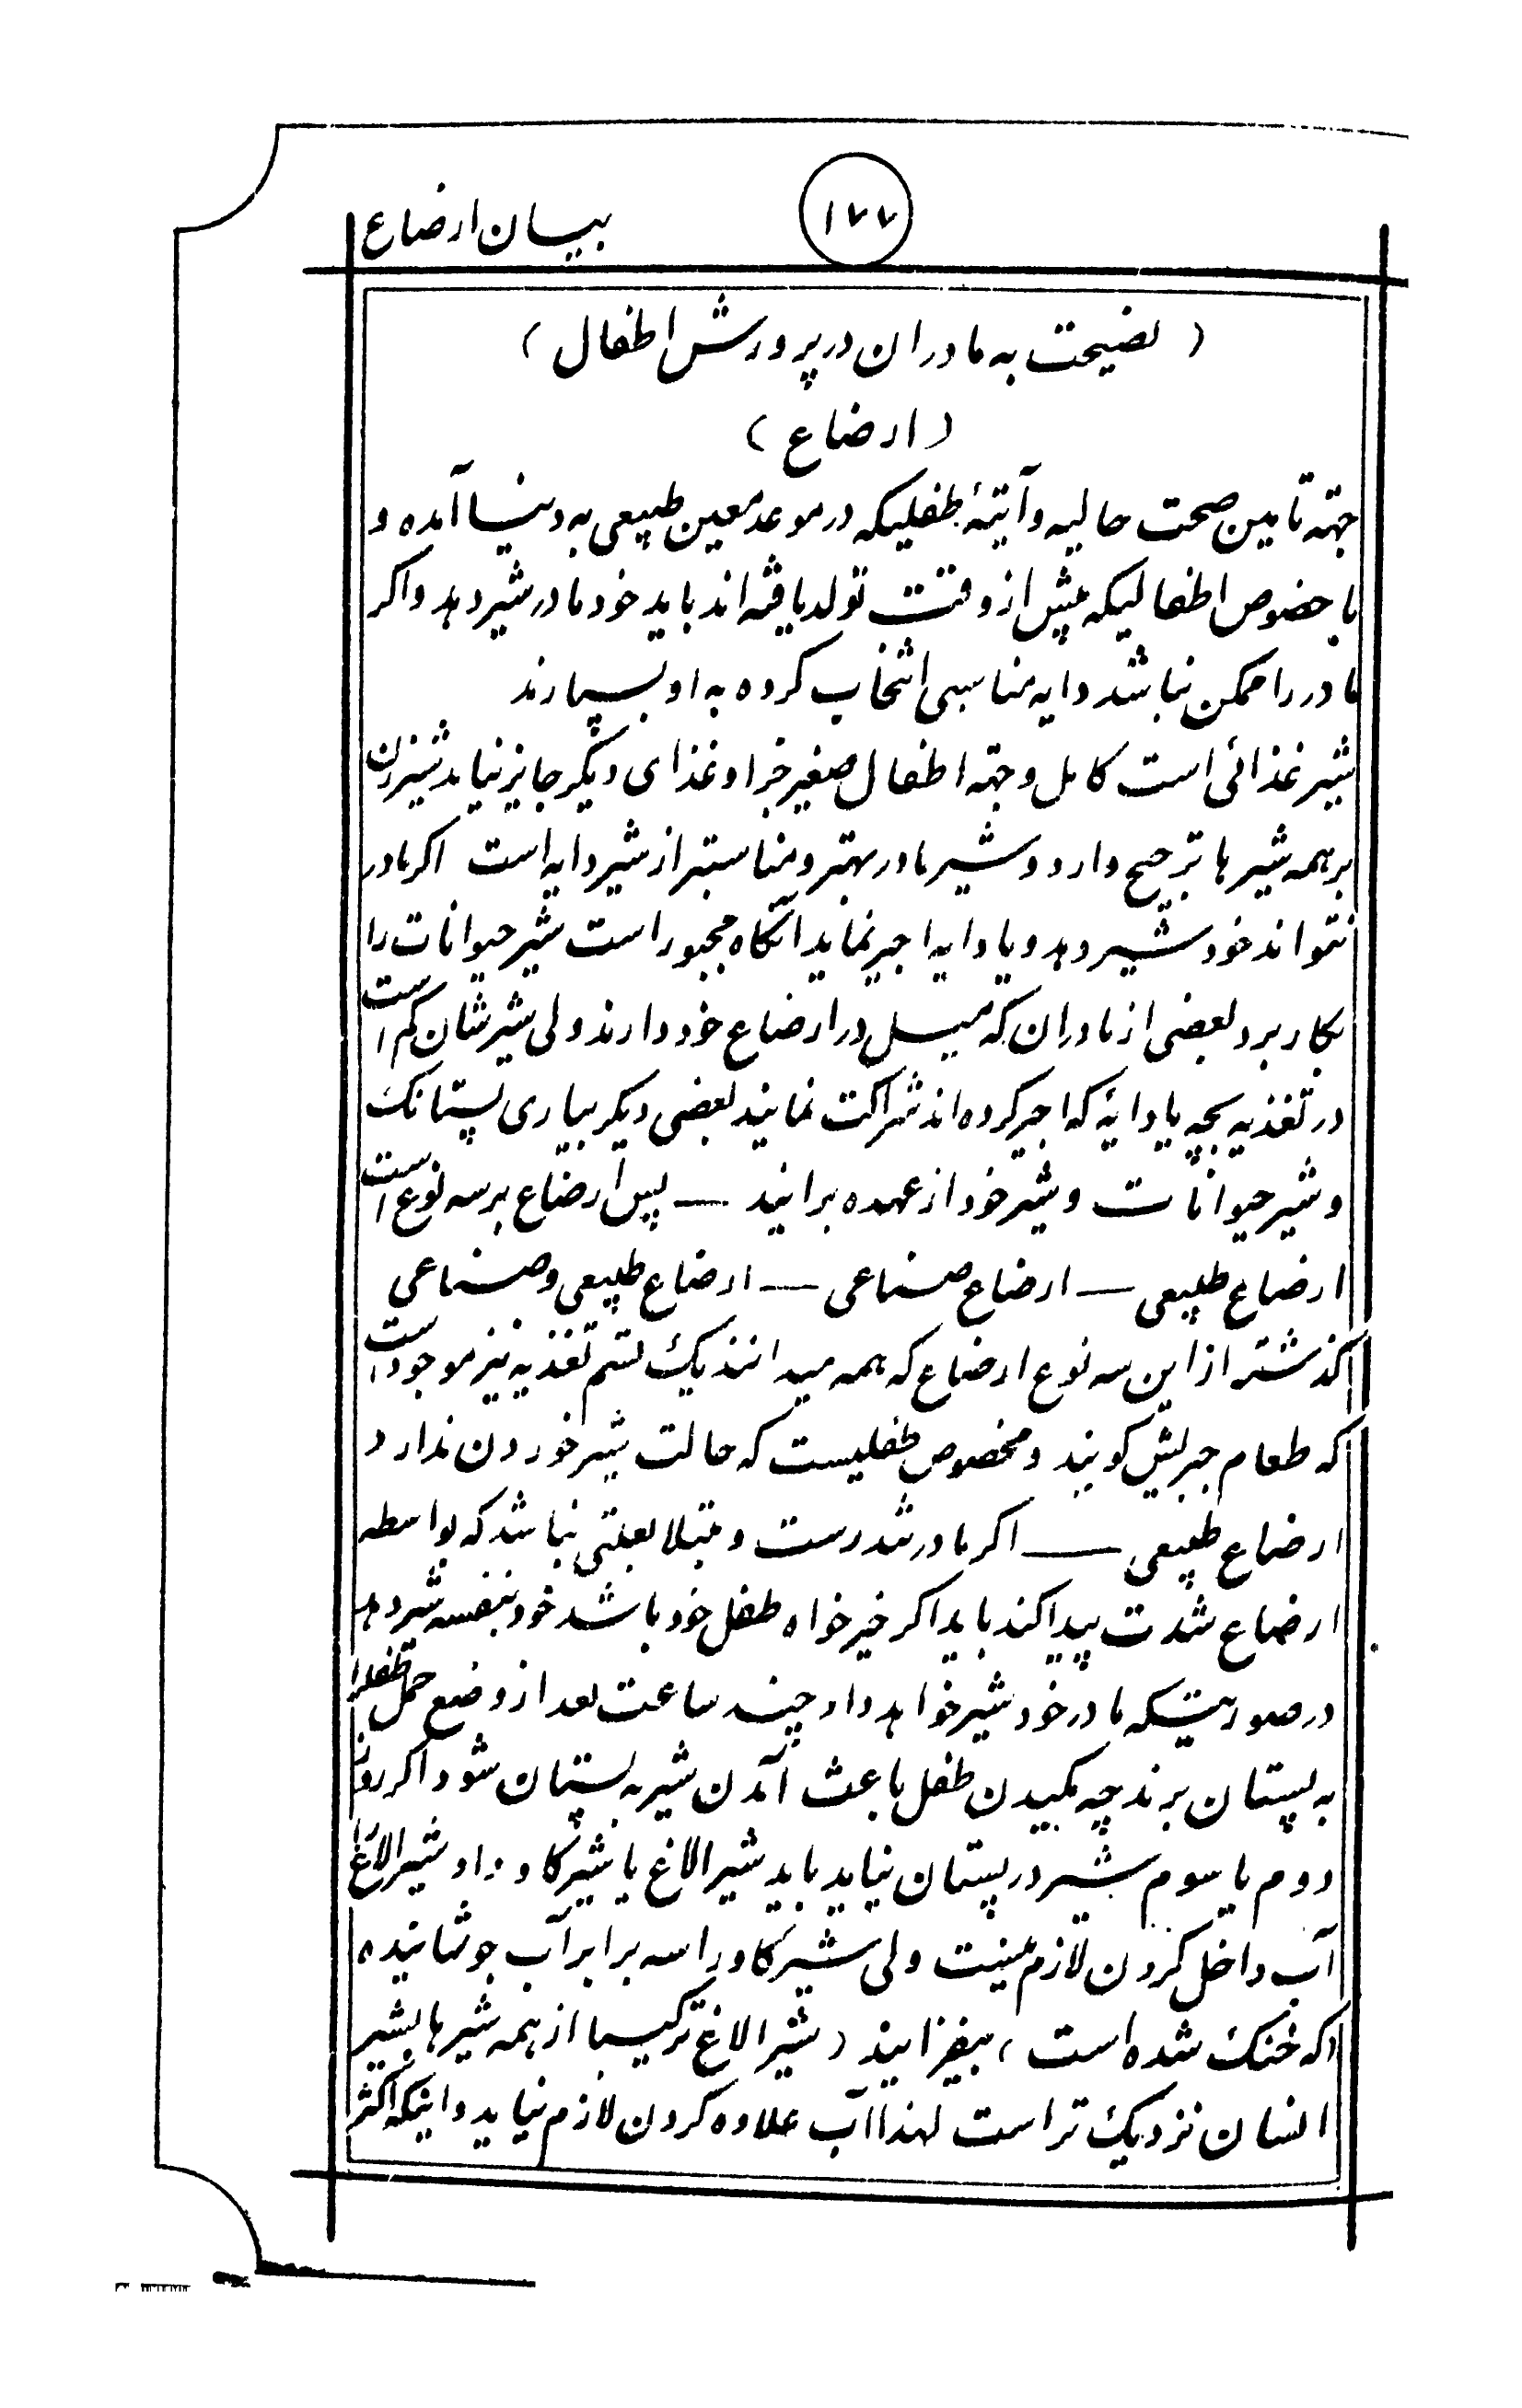 بیان ارضاع
۱۷۷
( نصیحت به مادران در پرورش اطفال )
( ارضاع )
جهته تامین صحت حالیه و آیتهٔ طفلیکه در موعد معین طبیعی به دنیا آمده و
با خصوص اطفالیکه پیش از وقت تولد یافته اند باید خود مادر شیر دهد و اگر
مادر را ممکن نباشد دایه مناسبی انتخاب کرده به او بسپارند
شیر غذائی است کامل و جهته اطفال صغیر جز او غذای دیگر جایز نیاید شیر زن
بر همه شیرها ترجیح دارد و شیر مادر بهتر و مناسبتر از شیر دایه است اگر مادر
نتواند خود شیر دهد و یا دایه اجیر نماید آنگاه مجبور است شیر حیوانات را
بکار برد بعضی از مادران که میل در ارضاع خود دارند ولی شیرشان کم است
در تغذیه بچه با دایهٔ که اجیر کرده اند شراکت نمایند بعضی دیگر بیاری پستانک
و شیر حیوانات و شیر خود از عهده برایند — پس ارضاع بر سه نوع است
ارضاع طبیعی — ارضاع صناعی — ارضاع طبیعی و صناعی
گذشته از این سه نوع ارضاع که همه میدانند یک قسم تغذیه نیز موجود است
که طعام جبریش گویند و مخصوص طفلیست که حالت شیر خوردن ندارد
ارضاع طبیعی — اگر مادر تندرست و مبتلا بعلتی نباشد که بواسطه
ارضاع شدت پیدا کند باید اگر خیرخواه طفل خود باشد خود بنفسه شیر دهد
در صورتیکه مادر خود شیر خواهد داد چند ساعت بعد از وضع حمل طفلرا
به پستان برند چه مکیدن طفل باعث آمدن شیر به پستان شود اگر روز
دوم یا سوم شیر در پستان نیاید باید شیر الاغ یا شیر گاو داد شیر الاغ را
آب داخل کردن لازم نیست ولی شیر گاو را سه برابر آب جوشانیده
(که خنک شده است) بیفزایند (شیر الاغ ترکیبا از همه شیرها بشیر
انسان نزدیک تر است لهذا آب علاوه کردن لازم نیاید و اینکه اکثر